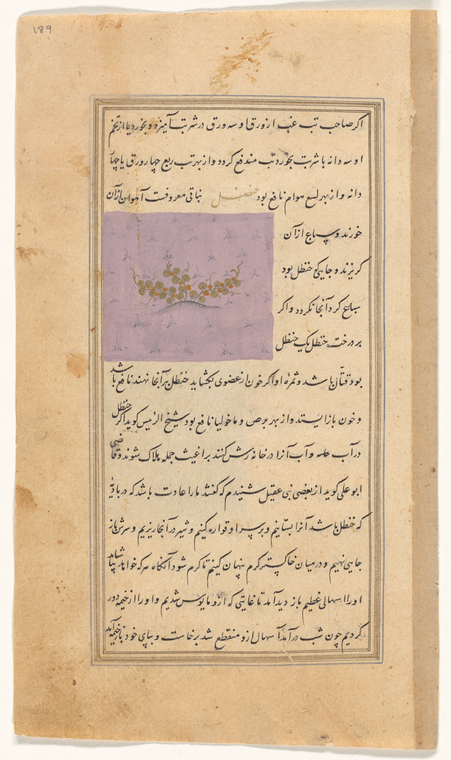 ۱۸۹
اگر صاحب تب غب از ورق او سه ورق در شربت آمیزد و بخورد یا از تخم
او سه دانه با شربت بخورد تب مندفع گردد و از بهر تب ربع چهار ورق یا چهار
دانه و از بهر لسع هوام نافع بود حنظل نباتی معروفست آهوان از آن
خورند و سباع از آن
گریزند و جایی که حنظل بود
سباع گرد آنجا نگردد و اگر
بر درخت حنظل یک حنظل
بود قتال باشد و ثمرهٔ او اگر خون از عضوی بگشاید حنظل بر آنجا نهند نافع باشد
و خون باز ایستد و از بهر برص و ماخولیا نافع بود شیخ الرئیس گوید اگر حنظل
در آب حله و آب آنرا در خانه رش کنند براغیث جمله هلاک شوند و قاضی
ابو علی گوید از بعضی بنی عقیل شنیدم که گفتند ما را عادت باشد که در بادیه
که حنظل باشد آنرا بستانیم و بر سر او قواره کنیم و شیر در آنجا ریزیم و سرش باز
جایی نهیم و در میان خاکستر گرم پنهان کنیم تا گرم شود آنگاه هر که خواهد بیاشامد
او را اسهالی عظیم باز دیدآمد تا غایتی که ازو مایوس شدیم و او را از خیمه دور
کردیم چون شب درآمد آن اسهال ازو منقطع شد برخاست و بپای خود با خیمه آمد